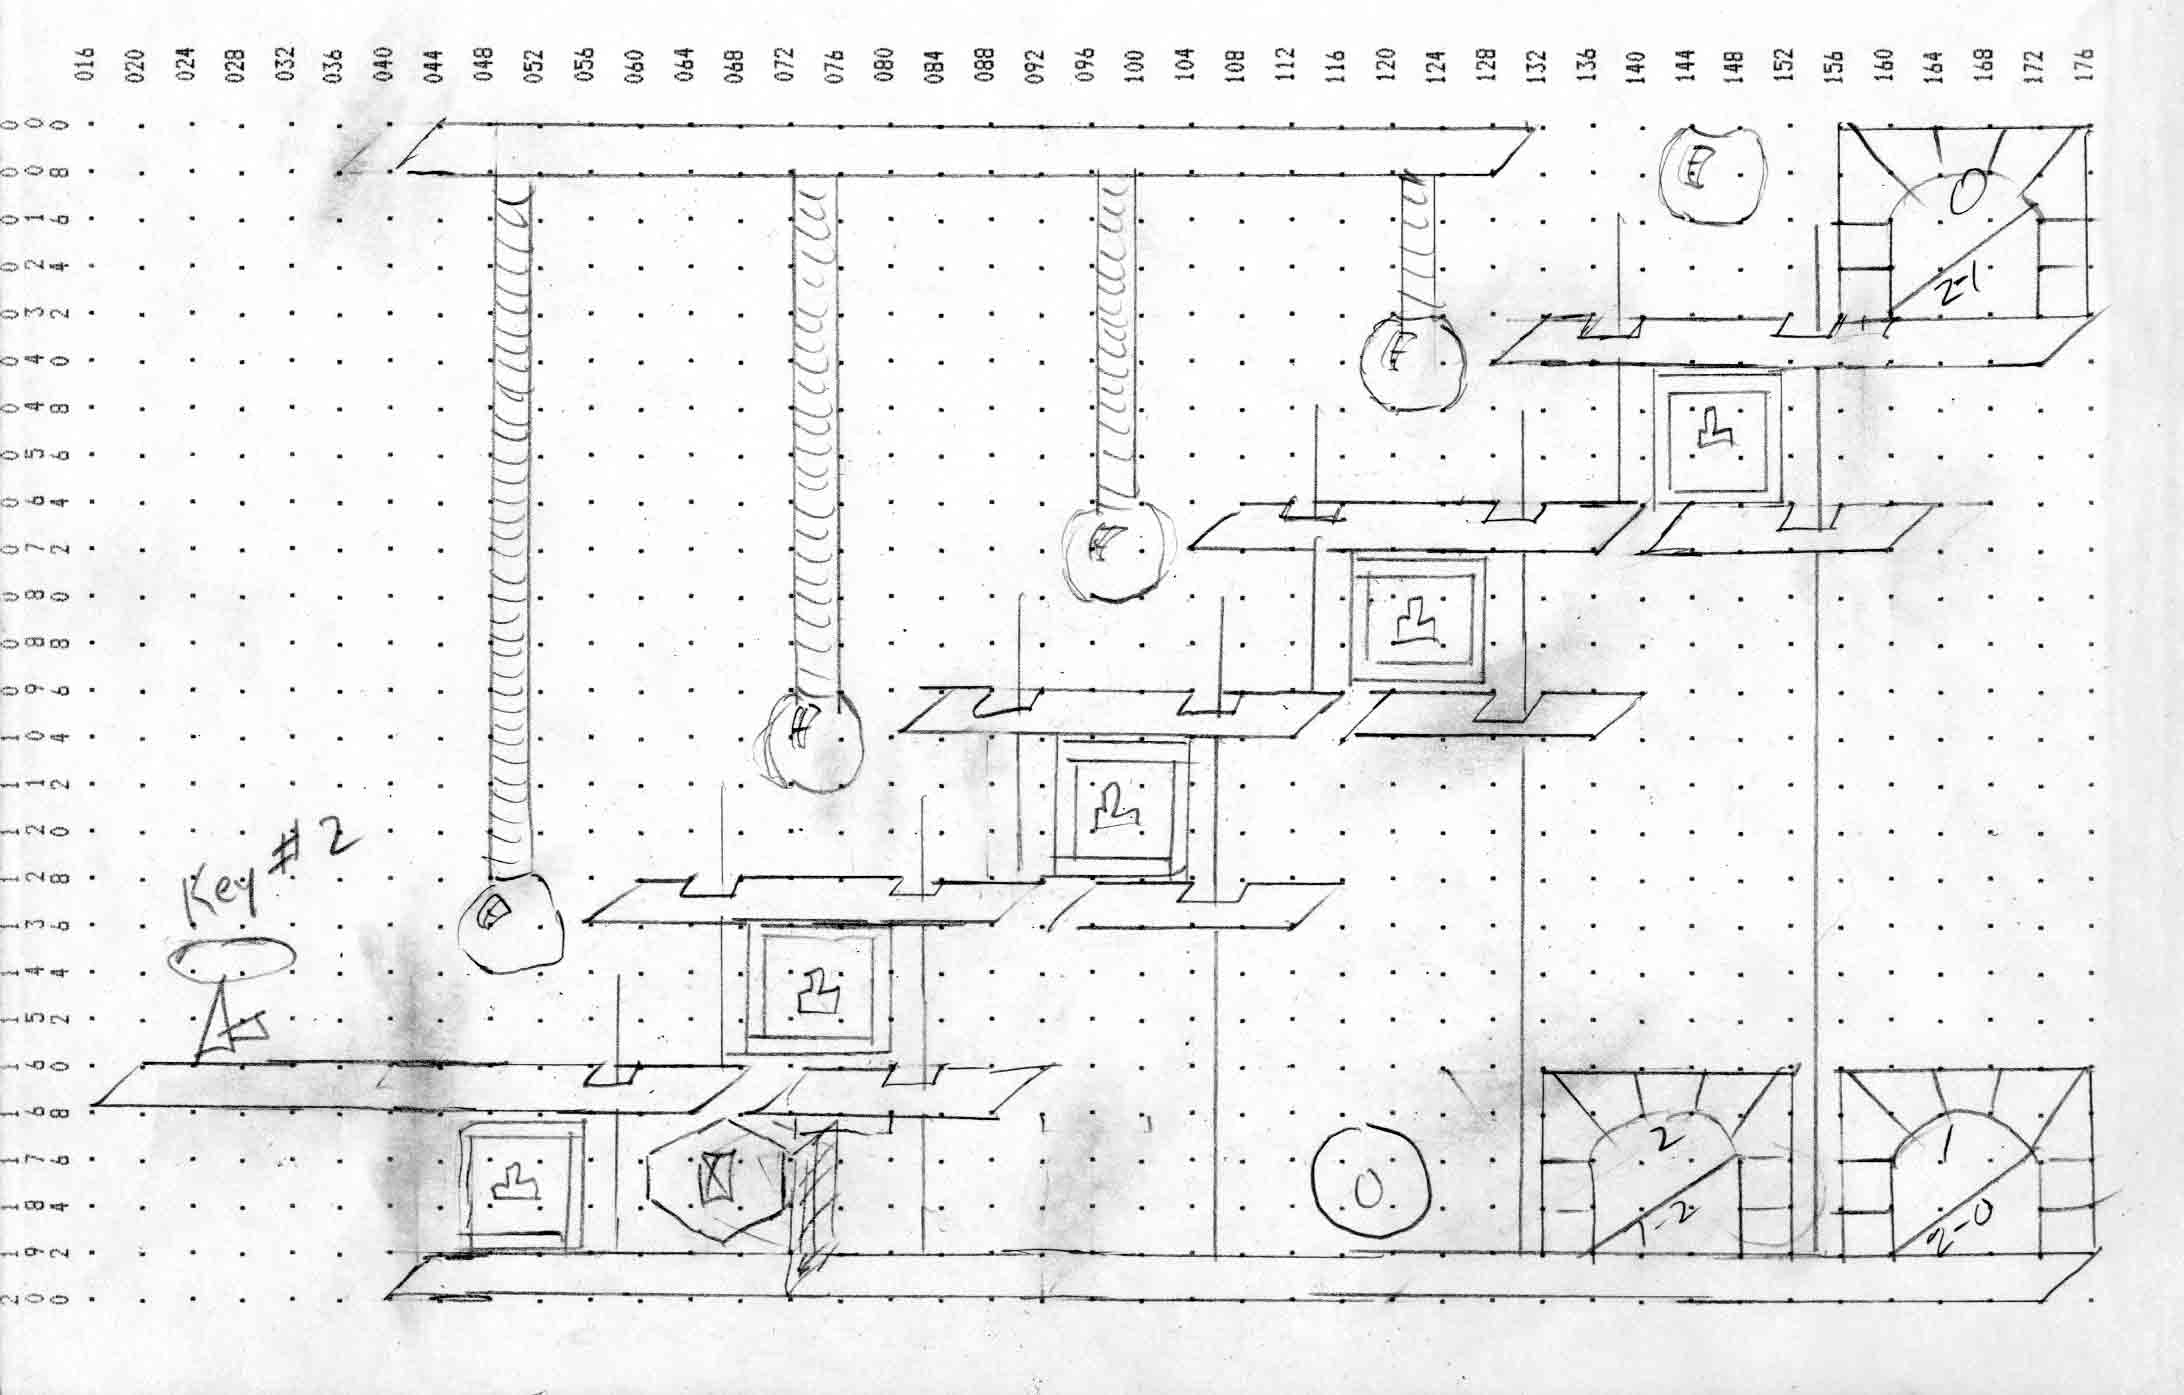 016 020 024 028 032 036 040 044 048 052 056 060 064 068 072 076 080 084 088 092 096 100 104 108 112 116 120 124 128 132 136 140 144 148 152 156 160 164 168 172 176
000
008
016
024
032
040
048
056
064
072
080
088
096
104
112
120
128
136
144
152
160
168
176
184
192
200
0
2-1
Key #2
0
2
1-2
1
2-0